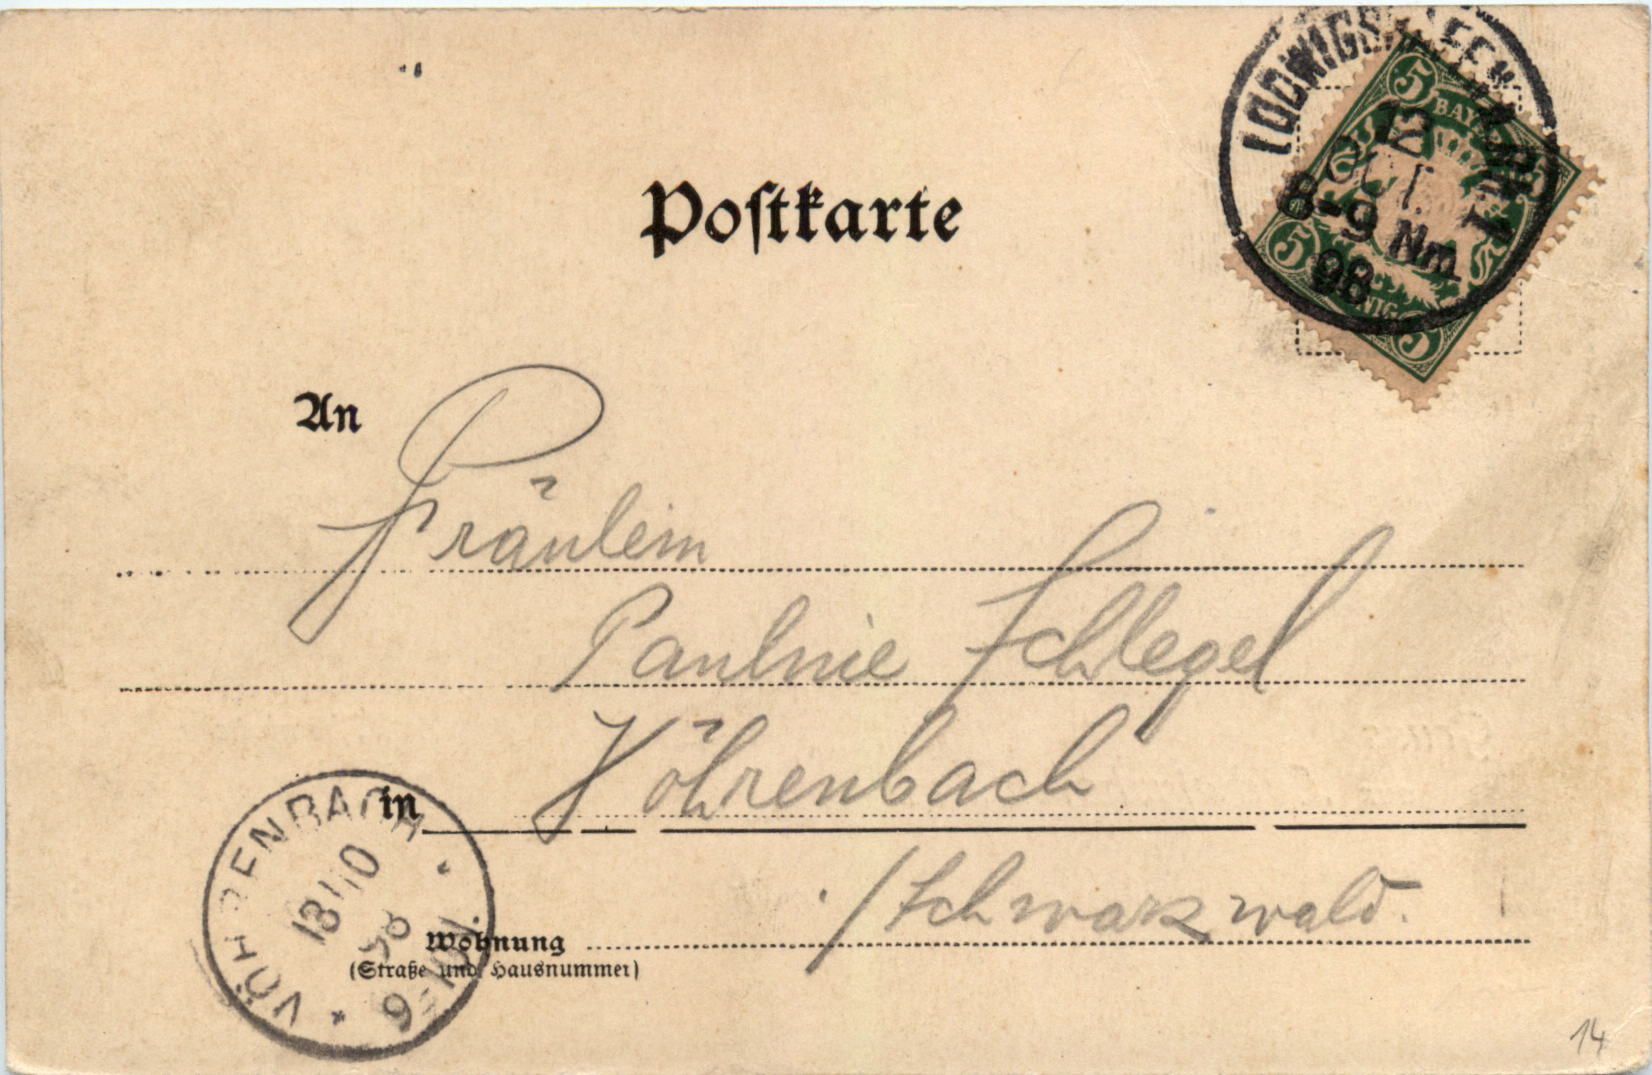 Postkarte
LUDWIGSHAFEN
12
OCT.
8-9 Nm
98
5 BAYERN
5
PFENNIG 5
An
Fräulein
Pauline Schlegel
in Vöhrenbach
/Schwarzwald.
Wohnung
(Straße und Hausnummer)
VÖHRENBACH
13 10
98
9-10V.
14